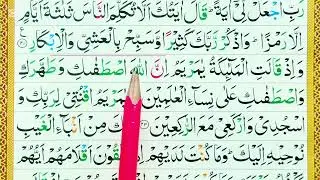 رَبِّ اجْعَلْ لِّيْۤ اٰيَةً ؕ قَالَ اٰيَتُكَ اَلَّا تُكَلِّمَ النَّاسَ ثَلٰثَةَ اَيَّامٍ
اِلَّا رَمْزًا ؕ وَاذْكُرْ رَّبَّكَ كَثِيْرًا وَّسَبِّحْ بِالْعَشِيِّ وَالْاِبْكَارِ
وَاِذْ قَالَتِ الْمَلٰٓئِكَةُ يٰمَرْيَمُ اِنَّ اللّٰهَ اصْطَفٰىكِ وَطَهَّرَكِ
وَاصْطَفٰىكِ عَلٰى نِسَآءِ الْعٰلَمِيْنَ يٰمَرْيَمُ اقْنُتِيْ لِرَبِّكِ وَ
اسْجُدِيْ وَارْكَعِيْ مَعَ الرّٰكِعِيْنَ ﴿۴۳﴾ ذٰلِكَ مِنْ اَنْۢبَآءِ الْغَيْبِ
نُوْحِيْهِ اِلَيْكَ ؕ وَمَا كُنْتَ لَدَيْهِمْ اِذْ يُلْقُوْنَ اَقْلَامَهُمْ اَيُّهُمْ